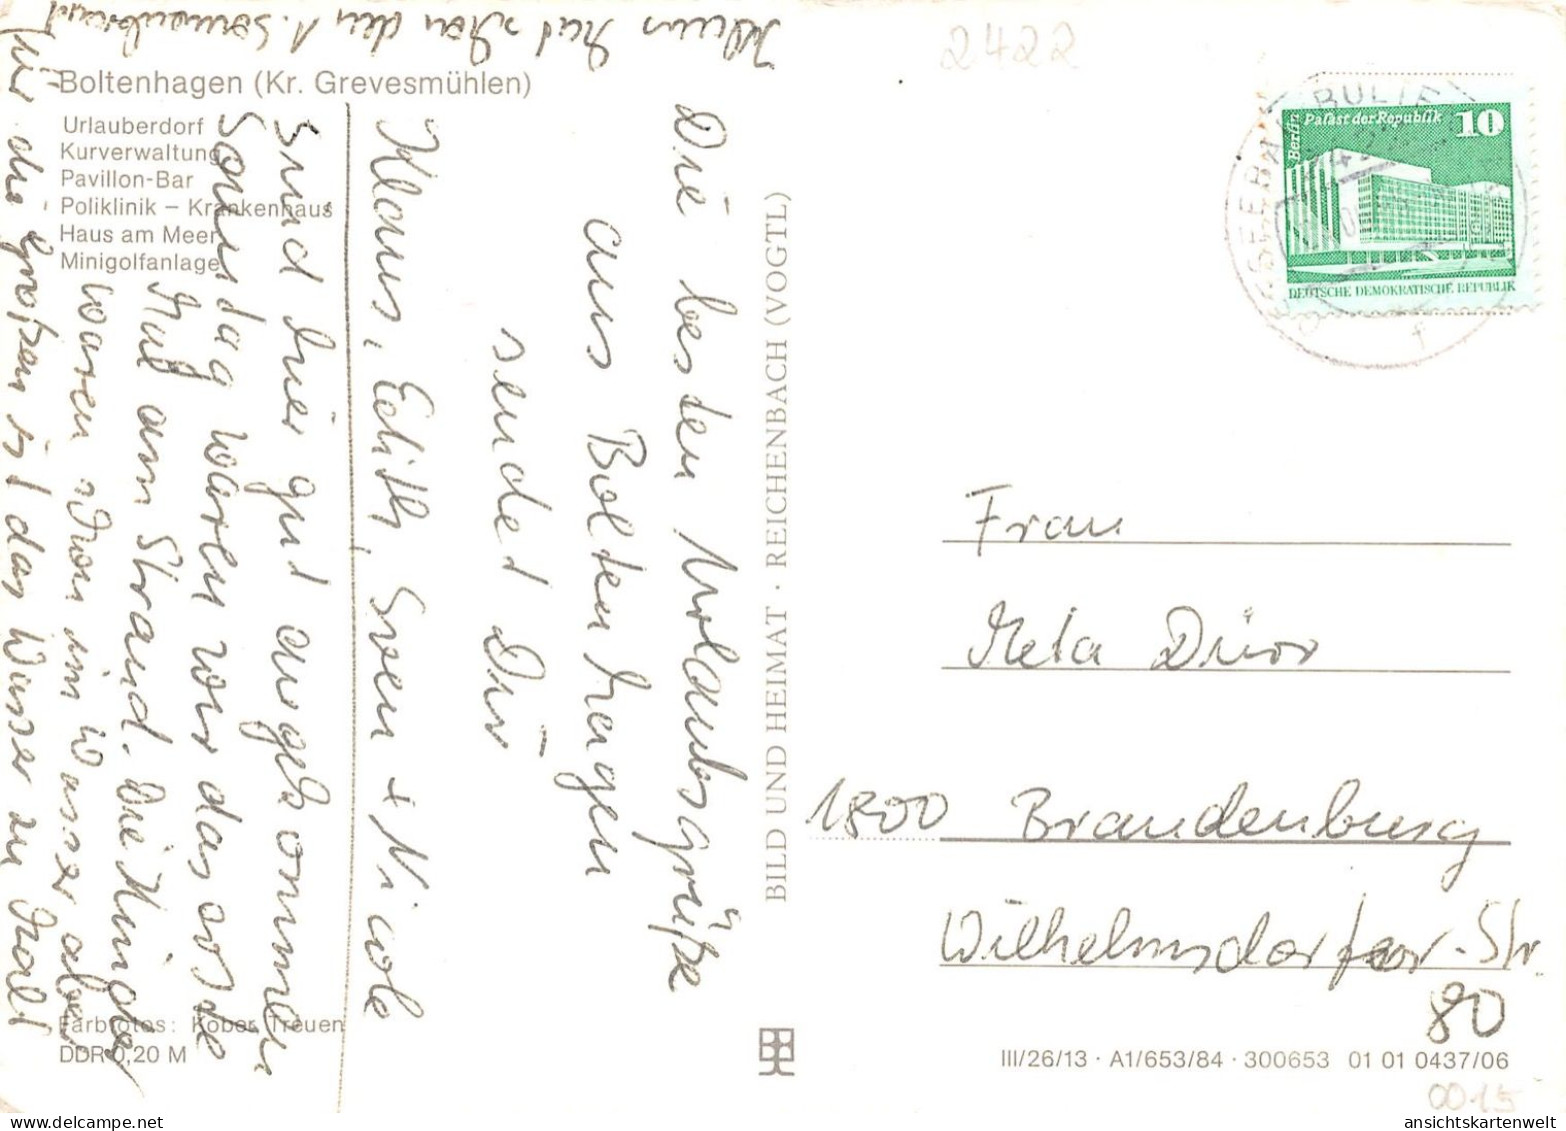 Boltenhagen (Kr. Grevesmühlen)
Urlauberdorf
Kurverwaltung
Pavillon-Bar
Poliklinik – Krankenhaus
Haus am Meer
Minigolfanlage
Die besten Urlaubsgrüße
aus Boltenhagen
sendet Dir
Klaus, Edith, Sven + Nicole
Sind hier gut angekommen
Sonndag waren wir das erste
Mal am Strand. Die Kinder
waren schon im Wasser aber
für die großen ist das Wasser zu kalt
Klaus hat schon den 1. Sonnenbrand
Farbfotos: Kober, Treuen
DDR 0,20 M
BILD UND HEIMAT · REICHENBACH (VOGTL)
2422
Berlin
Palast der Republik
10
DEUTSCHE DEMOKRATISCHE REPUBLIK
OSTSEEBAD BOLTE
f
Frau
Meta Dürr
1800 Brandenburg
Wilhelmsdorfer-Str.
80
III/26/13 · A1/653/84 · 300653 01 01 0437/06
0015
ansichtskartenwelt.com